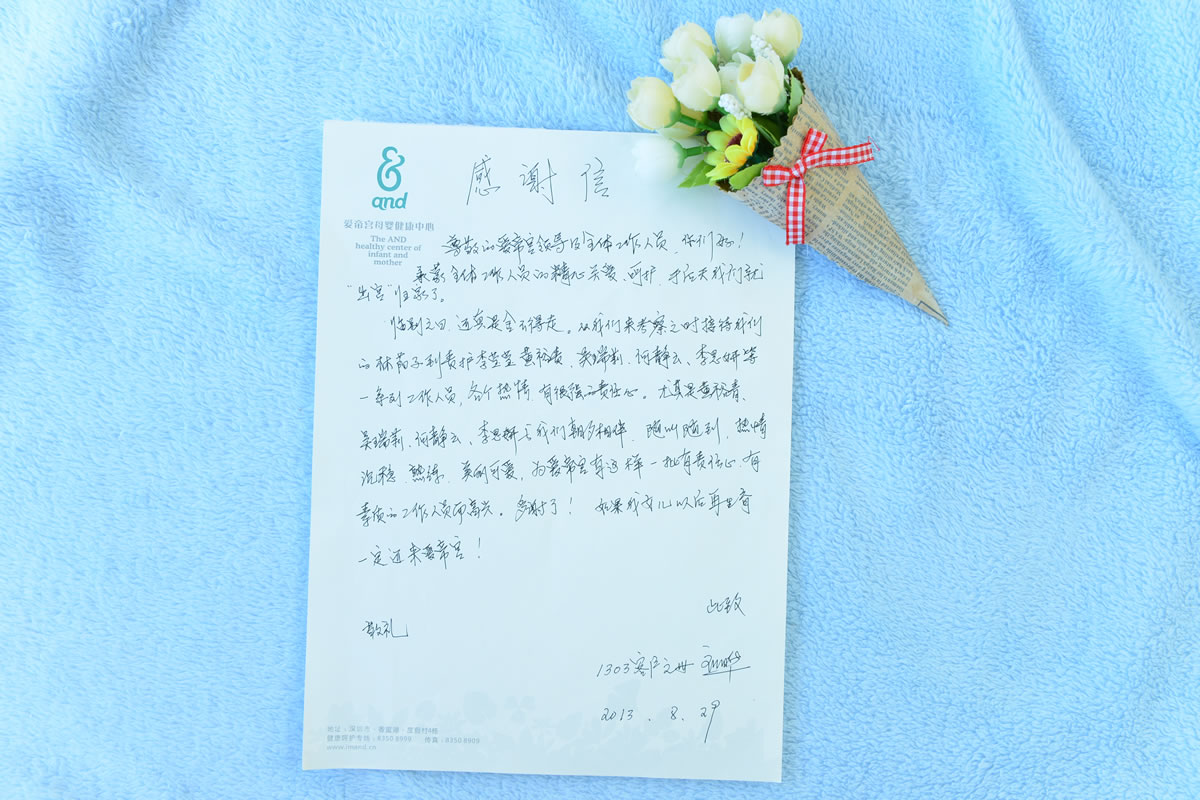 and
感谢信
爱帝宫母婴健康中心
The AND
healthy center of
infant and
mother
尊敬的爱帝宫领导及全体工作人员,你们好!
承蒙全体工作人员的精心关爱、呵护,才后天我们就
"出宫"归家了。
临别之日,还真是舍不得走。从我们来考察之时接待我们
的林茹子到责护李莹莹、黄裕青、吴瑞莉、何静云、李思妍等
一系列工作人员,各个热情,有很强的责任心。尤其是黄裕青、
吴瑞莉、何静云、李思妍与我们朝夕相伴,随叫随到,热情
沉稳、熟练、美丽可爱,为爱帝宫有这样一批有责任心、有
素质的工作人员而高兴。多谢了! 如果我女儿以后再生育
一定还来爱帝宫!
此致
敬礼
1303客户之母
2013.8.29
地址:深圳市·香蜜湖·度假村4栋
健康呵护专线:8350 8909 传真:8350 8909
www.imand.cn